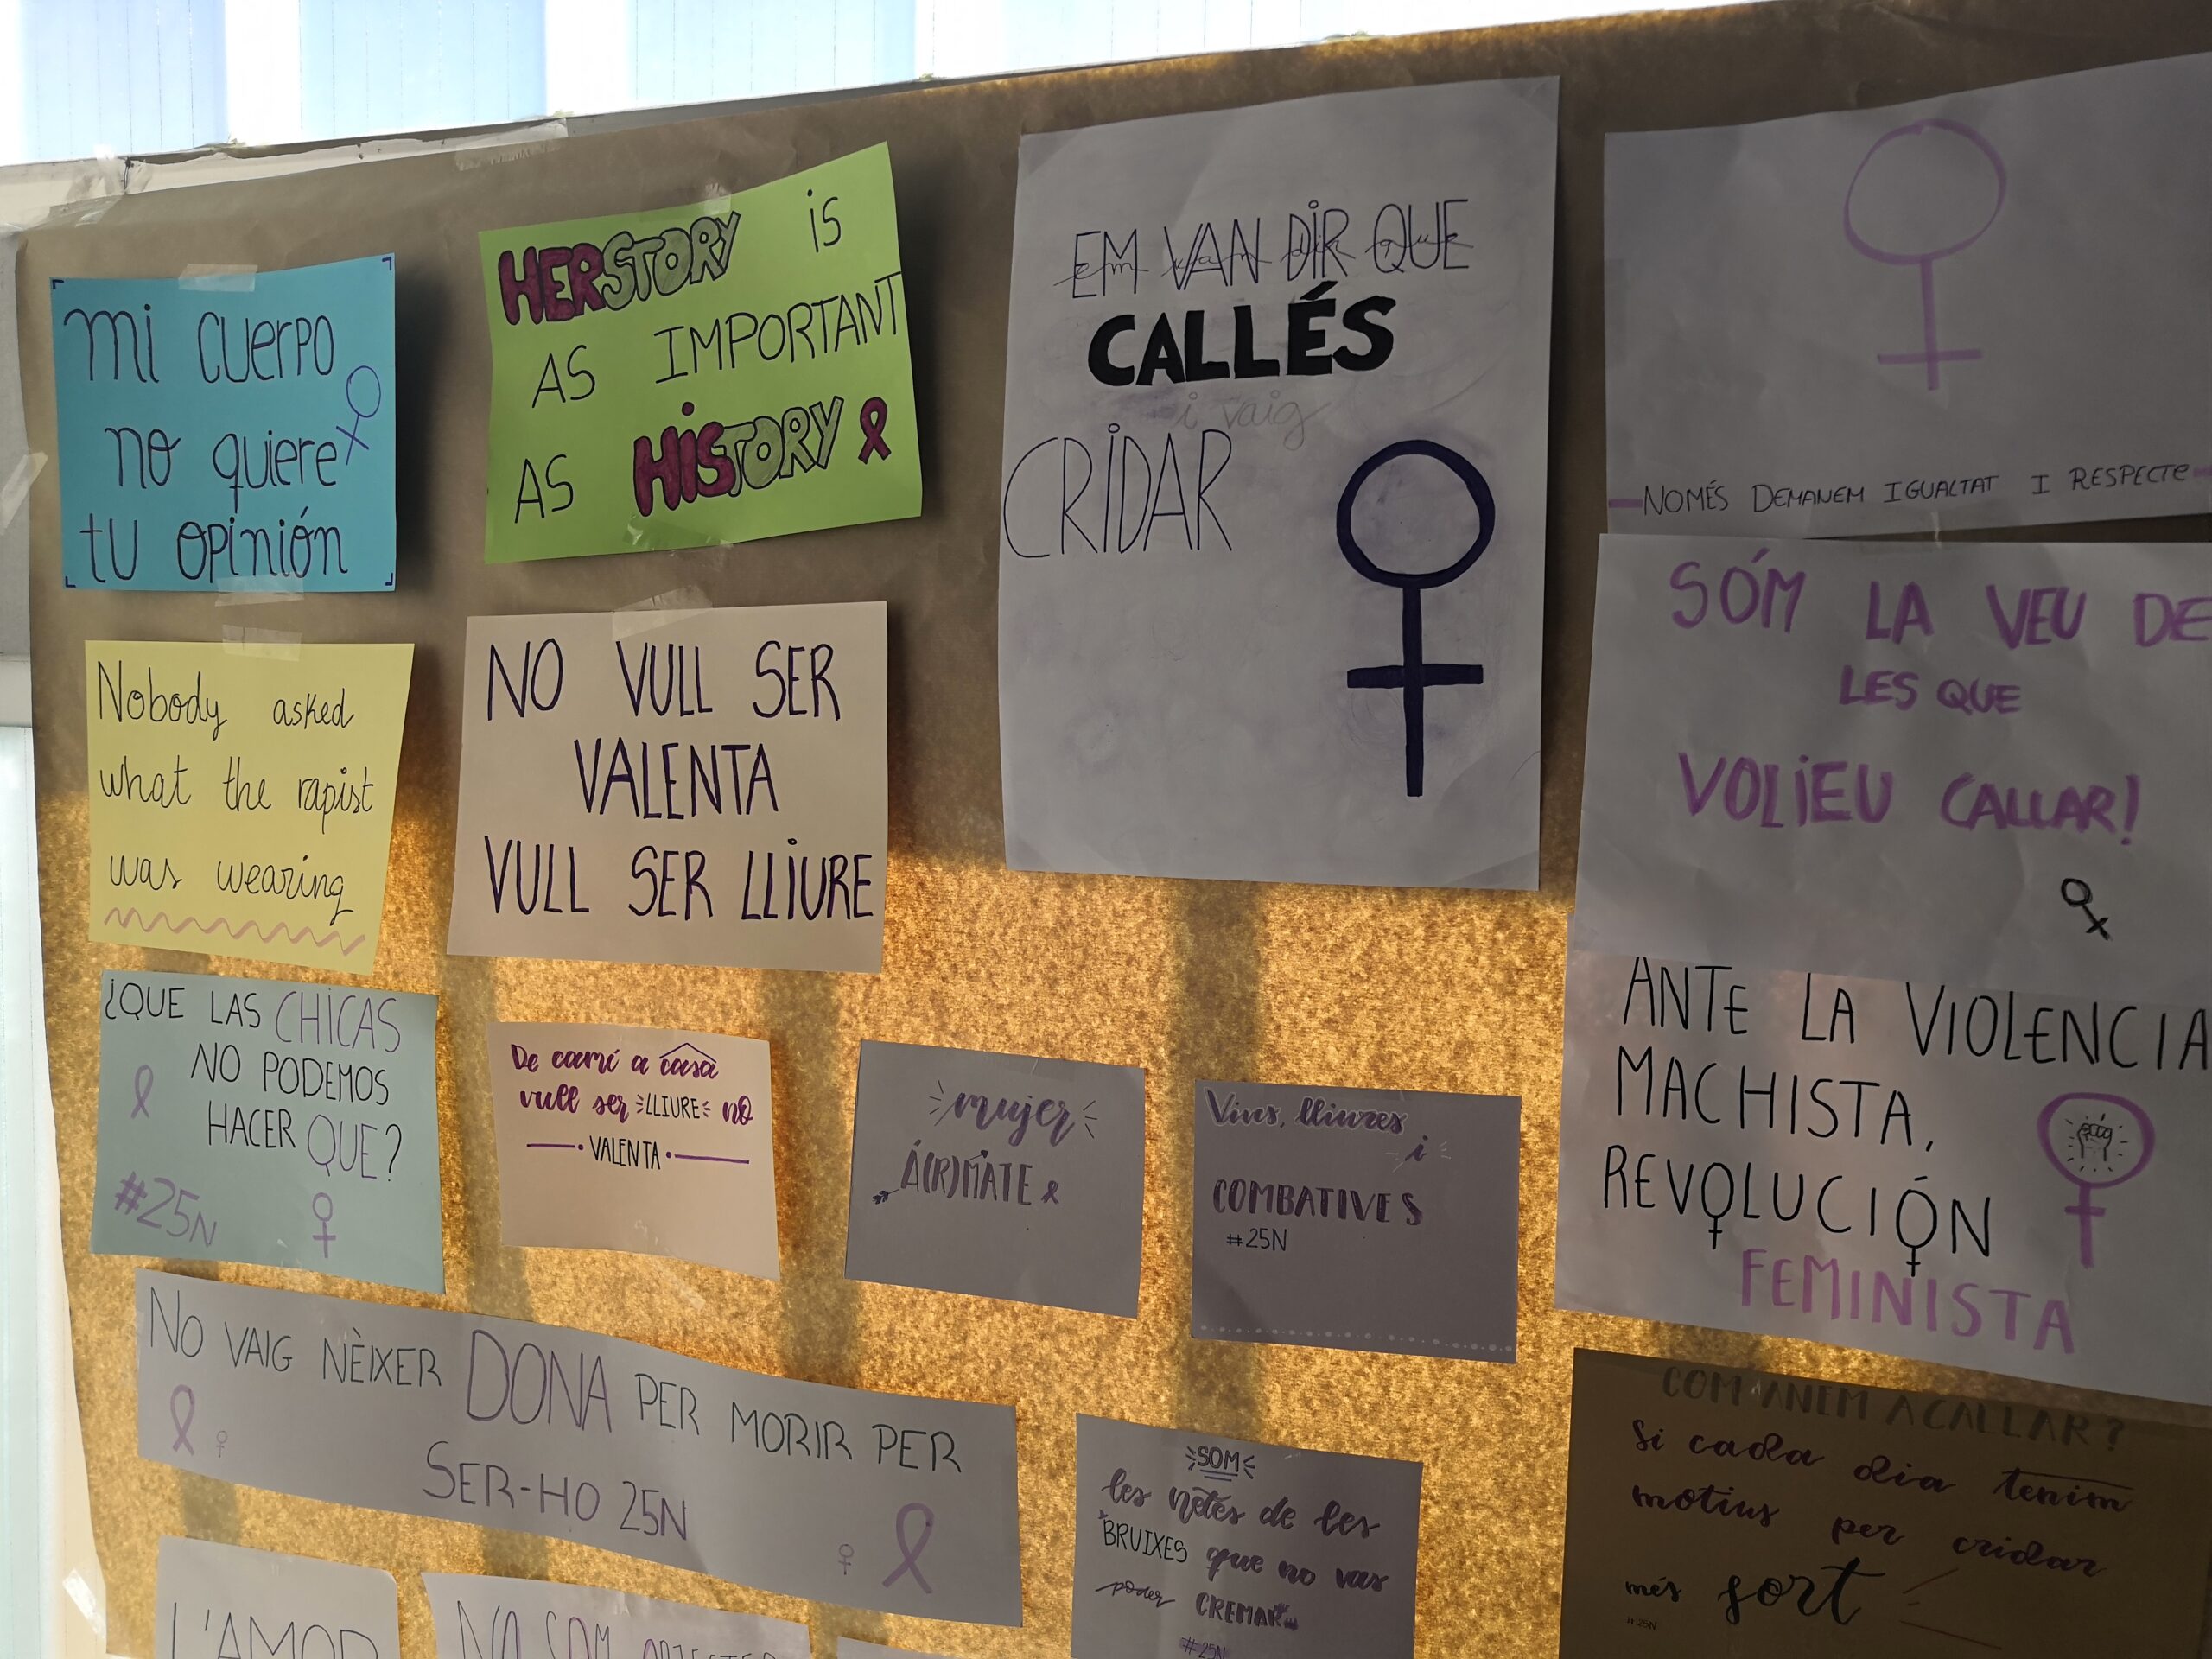 mi cuerpo
no quiere
tu opinión
HERSTORY is
AS IMPORTANT
AS HISTORY
EM VAN DIR QUE
CALLÉS
i vaig
CRIDAR
NOMÉS DEMANEM IGUALTAT I RESPECTE
SÓM LA VEU DE
LES QUE
VOLIEU CALLAR!
Nobody asked
what the rapist
was wearing
NO VULL SER
VALENTA
VULL SER LLIURE
ANTE LA VIOLENCIA
MACHISTA,
REVOLUCIÓN
FEMINISTA
¿QUE LAS CHICAS
NO PODEMOS
HACER QUE?
#25N
De camí a casa
vull ser LLIURE no
VALENTA
mujer
Á(R)MATE
Vives, lliures
i
COMBATIVES
#25N
NO VAIG NÈIXER DONA PER MORIR PER
SER-HO 25N
SOM
les nétes de les
BRUIXES que no vas
poder CREMAR
#25N
COM ANEM A CALLAR?
Si cada dia tenim
motius per cridar
més fort
#25N
L'AMOR
NO SOM